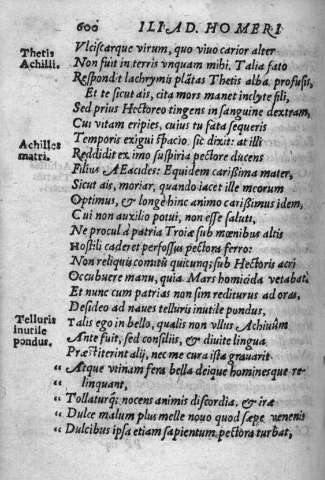 600 ILIAD. HOMERI
Vlciscarque virum, quo viuo carior alter
Thetis
Achilli.
Non fuit in terris vnquam mihi. Talia fato
Respondit lachrymis plãtas Thetis alba profusis,
Et te sicut ais, cita mors manet inclyte fili,
Sed prius Hectoreo tingens in sanguine dextram,
Cui vitam eripies, cuius tu fata sequeris
Achilles
matri.
Temporis exigui spacio. sic dixit: at illi
Reddidit ex imo suspiria pectore ducens
Filius AEacides: Equidem carißima mater,
Sicut ais, moriar, quando iacet ille meorum
Optimus, & longe hinc animo carißimus idem,
Cui non auxilio potui, non esse saluti,
Ne procul à patria Troiæ sub mœnibus altis
Hostili caderet perfossus pectora ferro:
Non reliquis comitũ quicunq; sub Hectoris acri
Occubuere manu, quia Mars homicida vetabat.
Et nunc cum patrias non sim rediturus ad oras,
Desideo ad naues telluris inutile pondus,
Telluris
inutile
pondus.
Talis ego in bello, qualis non vllus Achiuûm
Ante fuit, sed consilijs, & diuite lingua
Præstiterint alij, nec me cura ista grauarit
“ Atque vtinam fera bella deique hominesque re-
linquant,
“ Tollaturq; nocens animis discordia, & iræ
“ Dulce malum plus melle nouo quod sæpe venenis
“ Dulcibus ipsa etiam sapientum pectora turbat,